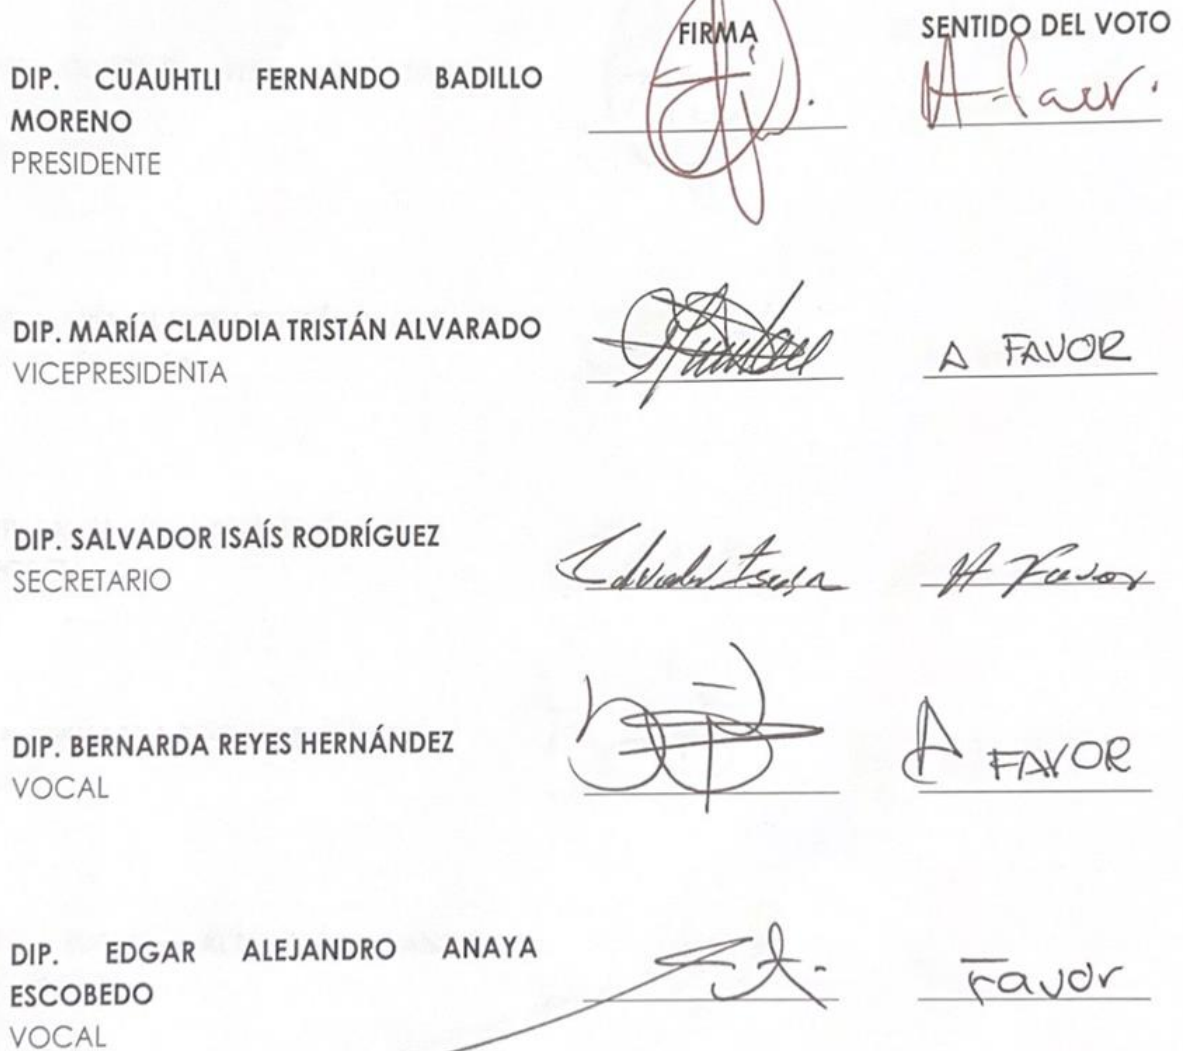 FIRMA SENTIDO DEL VOTO
DIP. CUAUHTLI FERNANDO BADILLO
MORENO
PRESIDENTE
DIP. MARÍA CLAUDIA TRISTÁN ALVARADO
VICEPRESIDENTA
A FAVOR
DIP. SALVADOR ISAÍS RODRÍGUEZ
SECRETARIO
A Favor
DIP. BERNARDA REYES HERNÁNDEZ
VOCAL
A FAVOR
DIP. EDGAR ALEJANDRO ANAYA
ESCOBEDO
VOCAL
Favor